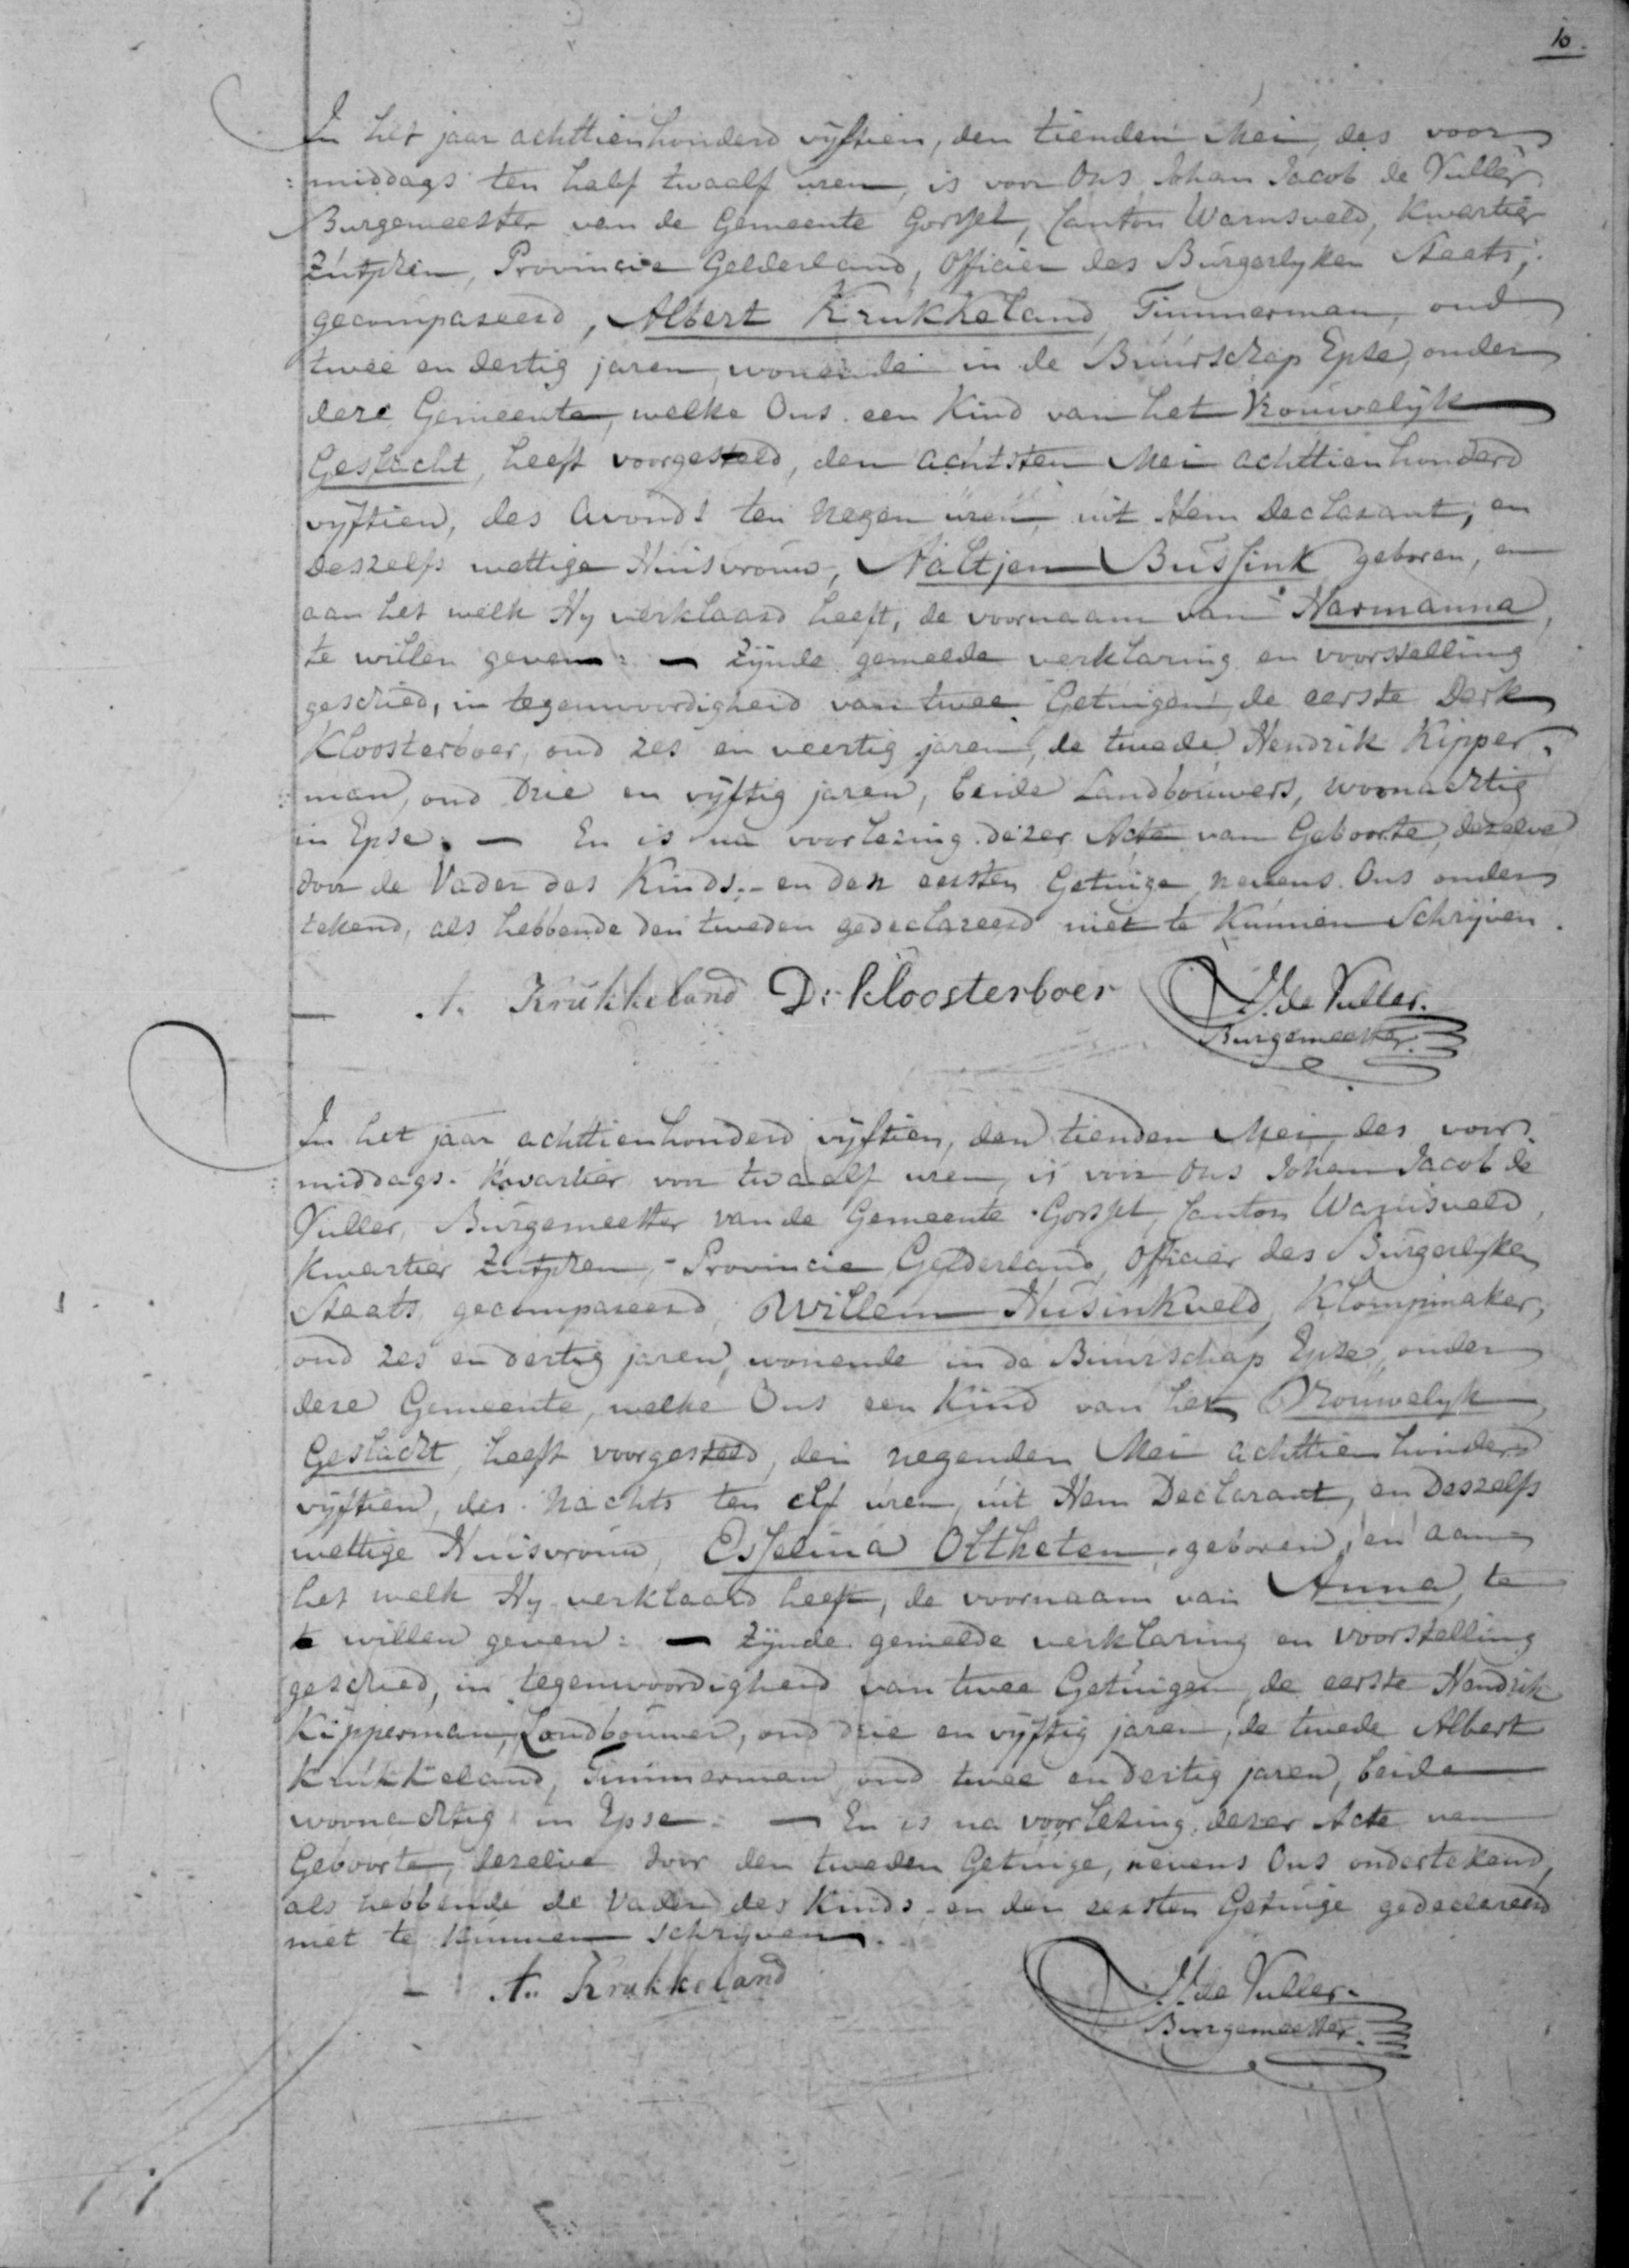 10.
In het jaar achttienhonderd vyftien, den tienden Mei, des voor
:middags ten half twaalf uren, is voor Ons Johan Jacob de Vuller
Burgemeester van de Gemeente Gorssel, Canton Warnsveld, Kwartier
Zutphen, Provincie Gelderland, Officier des Burgerlyken Staats,
gecompareerd, Albert Krukkeland, Timmerman, oud
twee en dertig jaren, wonende in de Buurschap Epse, onder
deze Gemeente, welke Ons een Kind van het Vrouwelijk
Geslacht, heeft voorgesteld, den achtsten Mei achttienhonderd
vyftien, des Avonds ten negen uren, uit Hem Declarant, en
deszelfs wettige Huisvrouw, Aaltjen Bussink geboren, en
aan het welk Hy verklaard heeft, de voornaam van Harmanna,
te willen geven: — zijnde gemelde verklaring en voorstelling
geschied, in tegenwoordigheid van twee Getuigen, de eerste Derk
Kloosterboer, oud zes en veertig jaren, de twede Hendrik Kipper-
:man, oud Drie en vijftig jaren, beide Landbouwers, woonachtig
in Epse. — En is na voorlezing dezer Acte van Geboorte, dezelve
door de Vader des Kinds - en den eersten Getuige nevens Ons onder
tekend, als hebbende den tweden gedeclareerd niet te Kunnen Schrijven.
A. Krukkeland D: kloosterboer J.J. de Vuller.
Burgemeester.
In het jaar achttienhonderd vijftien, den tienden Mei, des voor
:middags. Kwartier voor twaalf uren, is voor Ons Johan Jacob de
Vuller, Burgemeester van de Gemeente Gorssel, Canton Warnsveld,
Kwartier Zutphen, - Provincie Gelderland, Officier des Burgerlyken
Staats, gecompareerd, Willem Husinkveld, Klompmaker,
oud zes en dertig jaren, wonende in de Buurschap Epse, onder
deze Gemeente, welke Ons een Kind van het Vrouwelyk
Geslacht, heeft voorgesteld, den negenden Mei achttien honderd
vijftien, des Nachts ten elf uren, uit Hem Declarant, en Deszelfs
wettige Huisvrouw, Esselina Oltheten, geboren, en aan
het welk Hy verklaard heeft, de voornaam van Anna, te
te willen geven: — zijnde gemelde verklaring en voorstelling
geschied, in tegenwoordigheid van twee Getuigen, de eerste Hendrik
Kipperman, Landbouwer, oud drie en vijftig jaren, de twede Albert
Krukkeland, Timmerman, oud twee en dertig jaren, beide
woonachtig in Epse. — En is na voorlezing dezer Acte van
Geboorte, dezelve door den tweden Getuige, nevens Ons ondertekend,
als hebbende de Vader des Kinds - en den eersten Getuige gedeclareerd
niet te Kunnen Schrijven.
A. Krukkeland J.J. de Vuller.
Burgemeester.